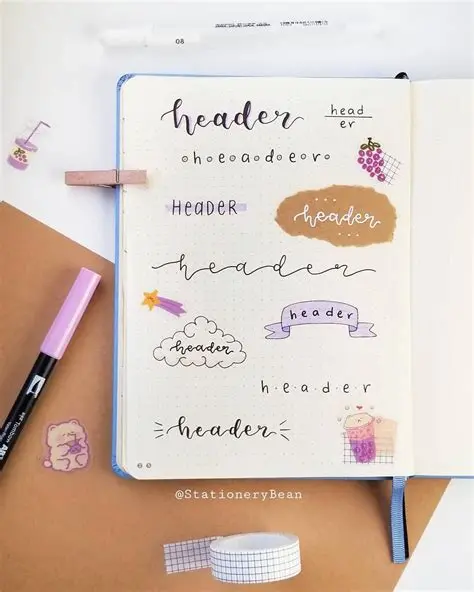 08
header
head
er
o h o e o a o d o e o r o
HEADER
header
header
header
header
h · e · a · d · e · r
header
@StationeryBean